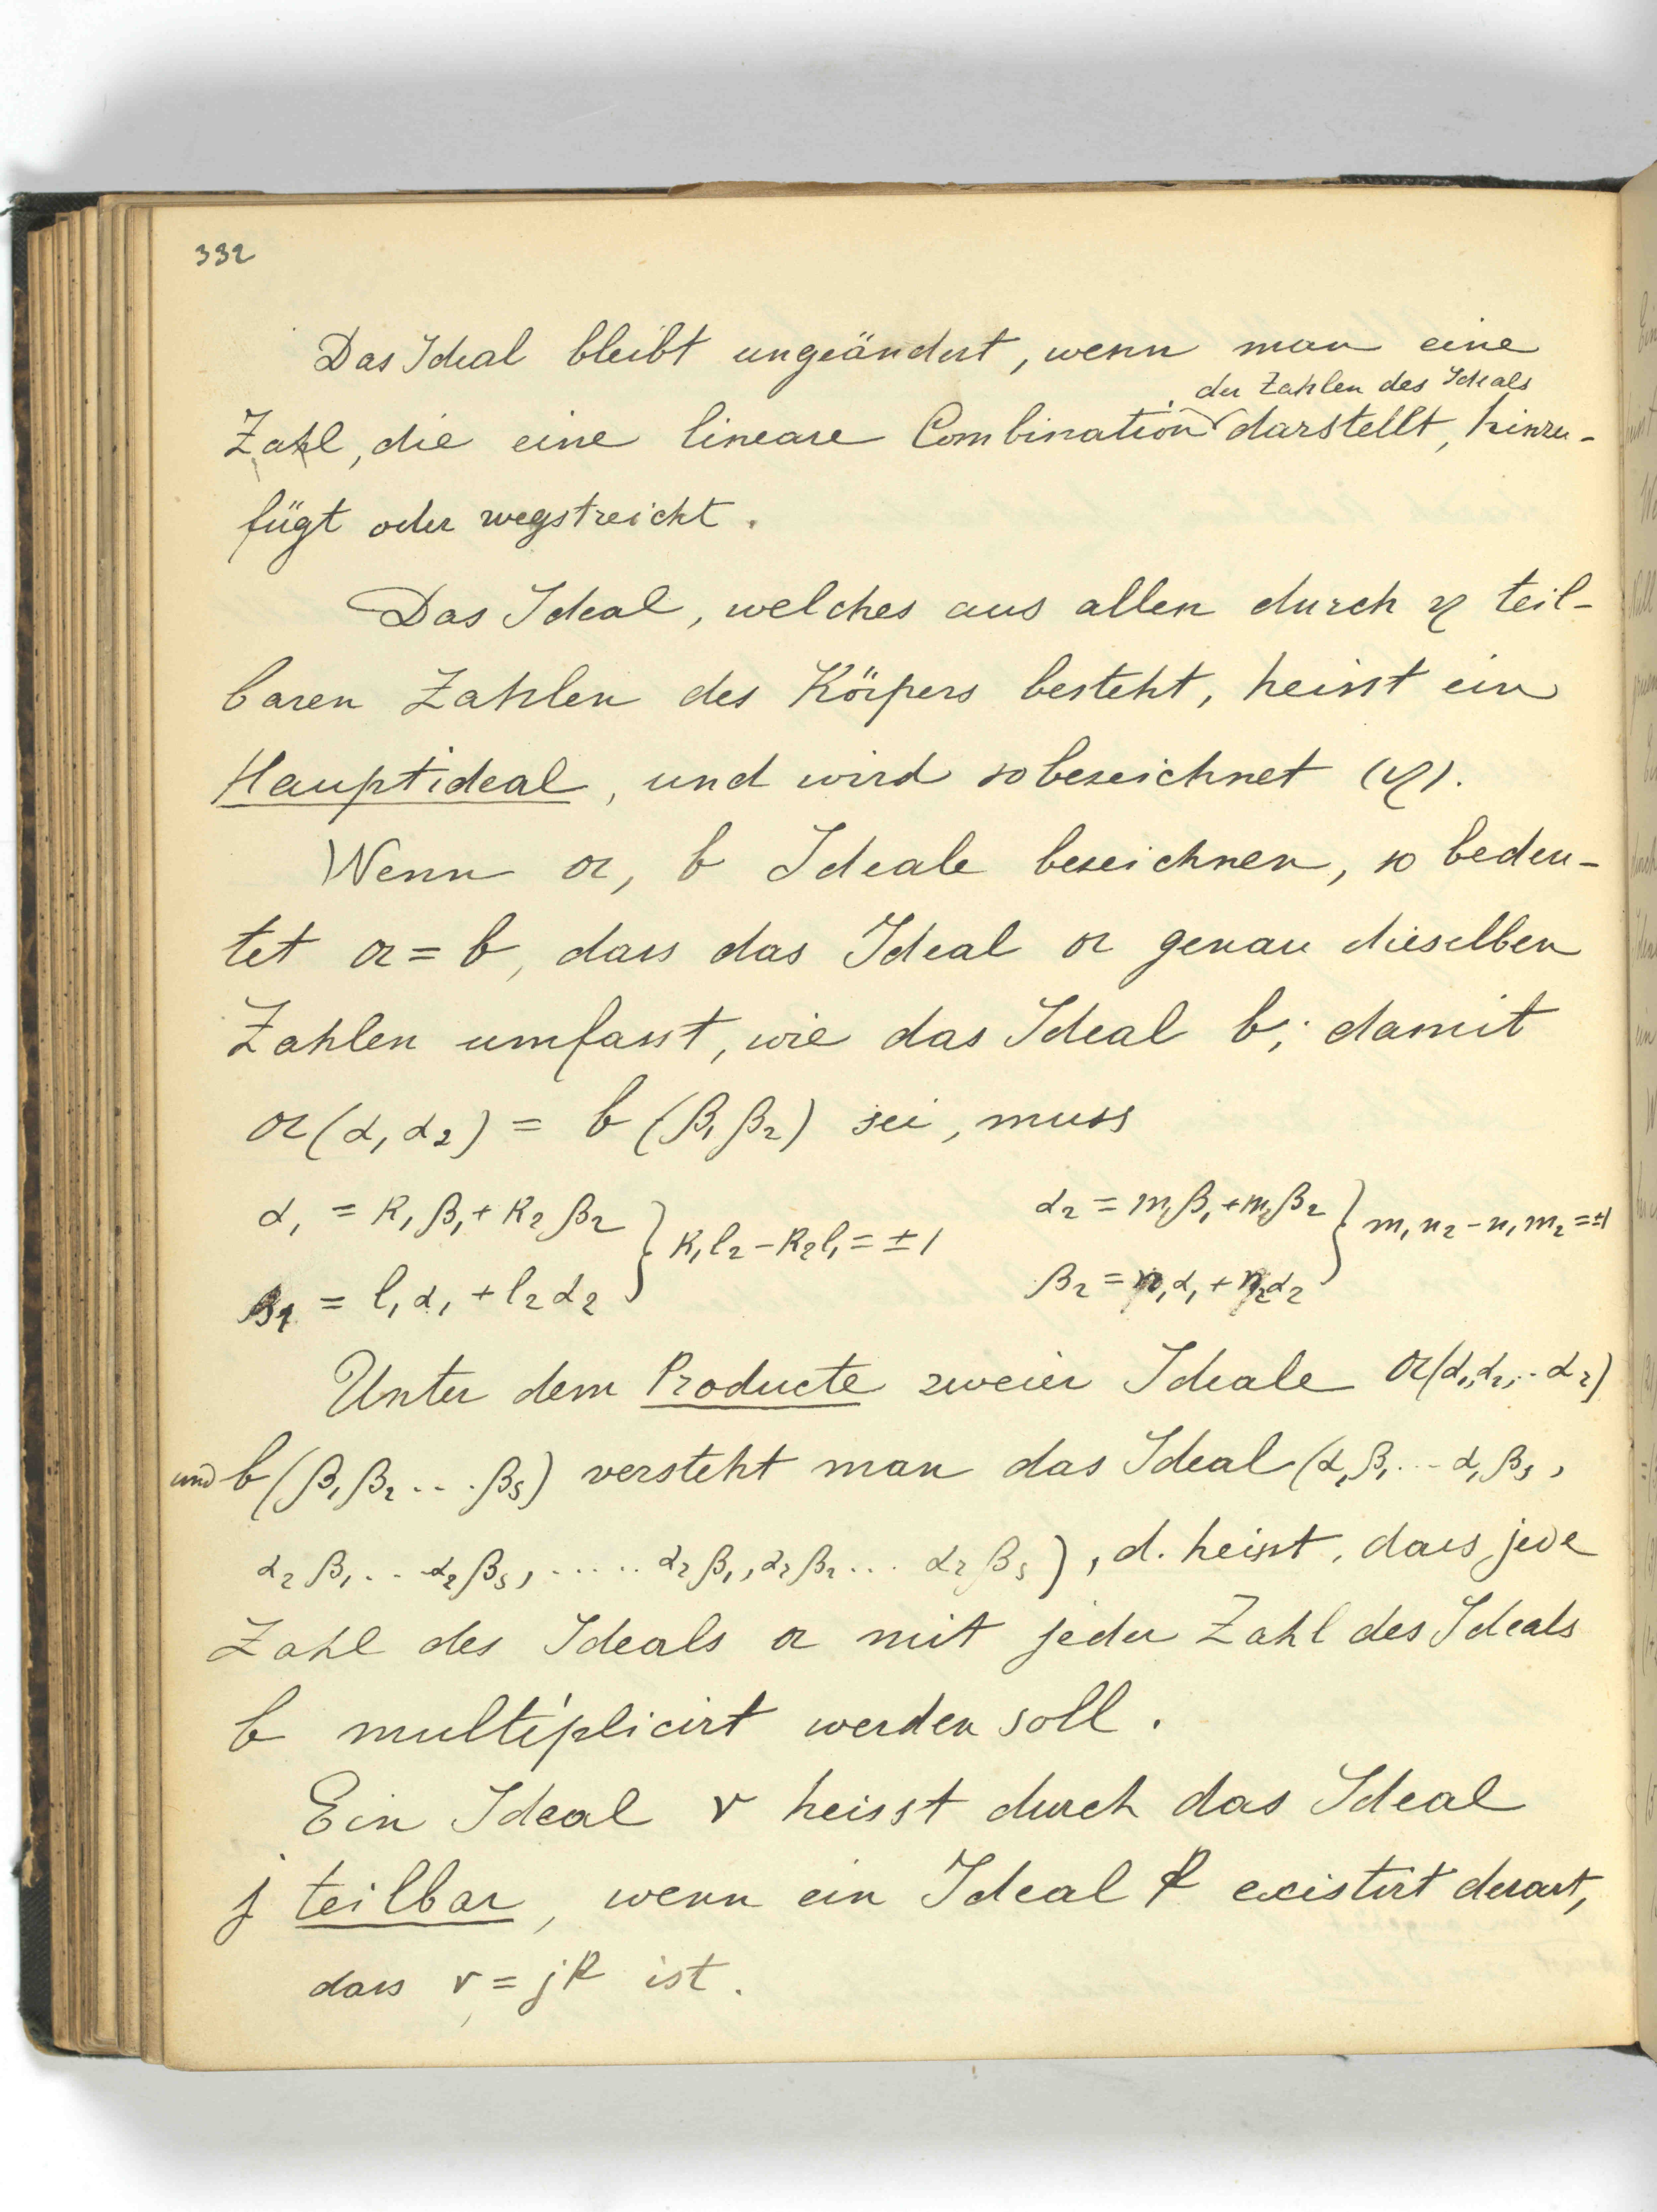 332
Das Ideal bleibt ungeändert, wenn man eine
der Zahlen des Ideals
Zahl, die eine lineare Combination darstellt, hinzu-
fügt oder wegstreicht.
Das Ideal, welches aus allen durch η teil-
baren Zahlen des Körpers besteht, heisst ein
Hauptideal, und wird so bezeichnet (η).
Wenn 𝔞, 𝔟 Ideale bezeichnen, so bedeu-
tet 𝔞 = 𝔟, dass das Ideal 𝔞 genau dieselben
Zahlen umfasst, wie das Ideal 𝔟; damit
𝔞(α₁ α₂) = 𝔟(β₁ β₂) sei, muss
α₁ = k₁β₁ + k₂β₂ } k₁l₂ - k₂l₁ = ±1 α₂ = m₁β₁ + m₂β₂ } m₁n₂ - n₁m₂ = ±1
β₁ = l₁α₁ + l₂α₂ β₂ = n₁α₁ + n₂α₂
Unter dem Producte zweier Ideale 𝔞(α₁,α₂,..α_r)
und 𝔟(β₁β₂...β_s) versteht man das Ideal (α₁β₁...α₁β_s,
α₂β₁...α₂β_s,.....α_rβ₁, α_rβ₂...α_rβ_s), d. heisst, dass jede
Zahl des Ideals 𝔞 mit jeder Zahl des Ideals
𝔟 multiplicirt werden soll.
Ein Ideal r heisst durch das Ideal
j teilbar, wenn ein Ideal k existirt derart,
dass r = jk ist.